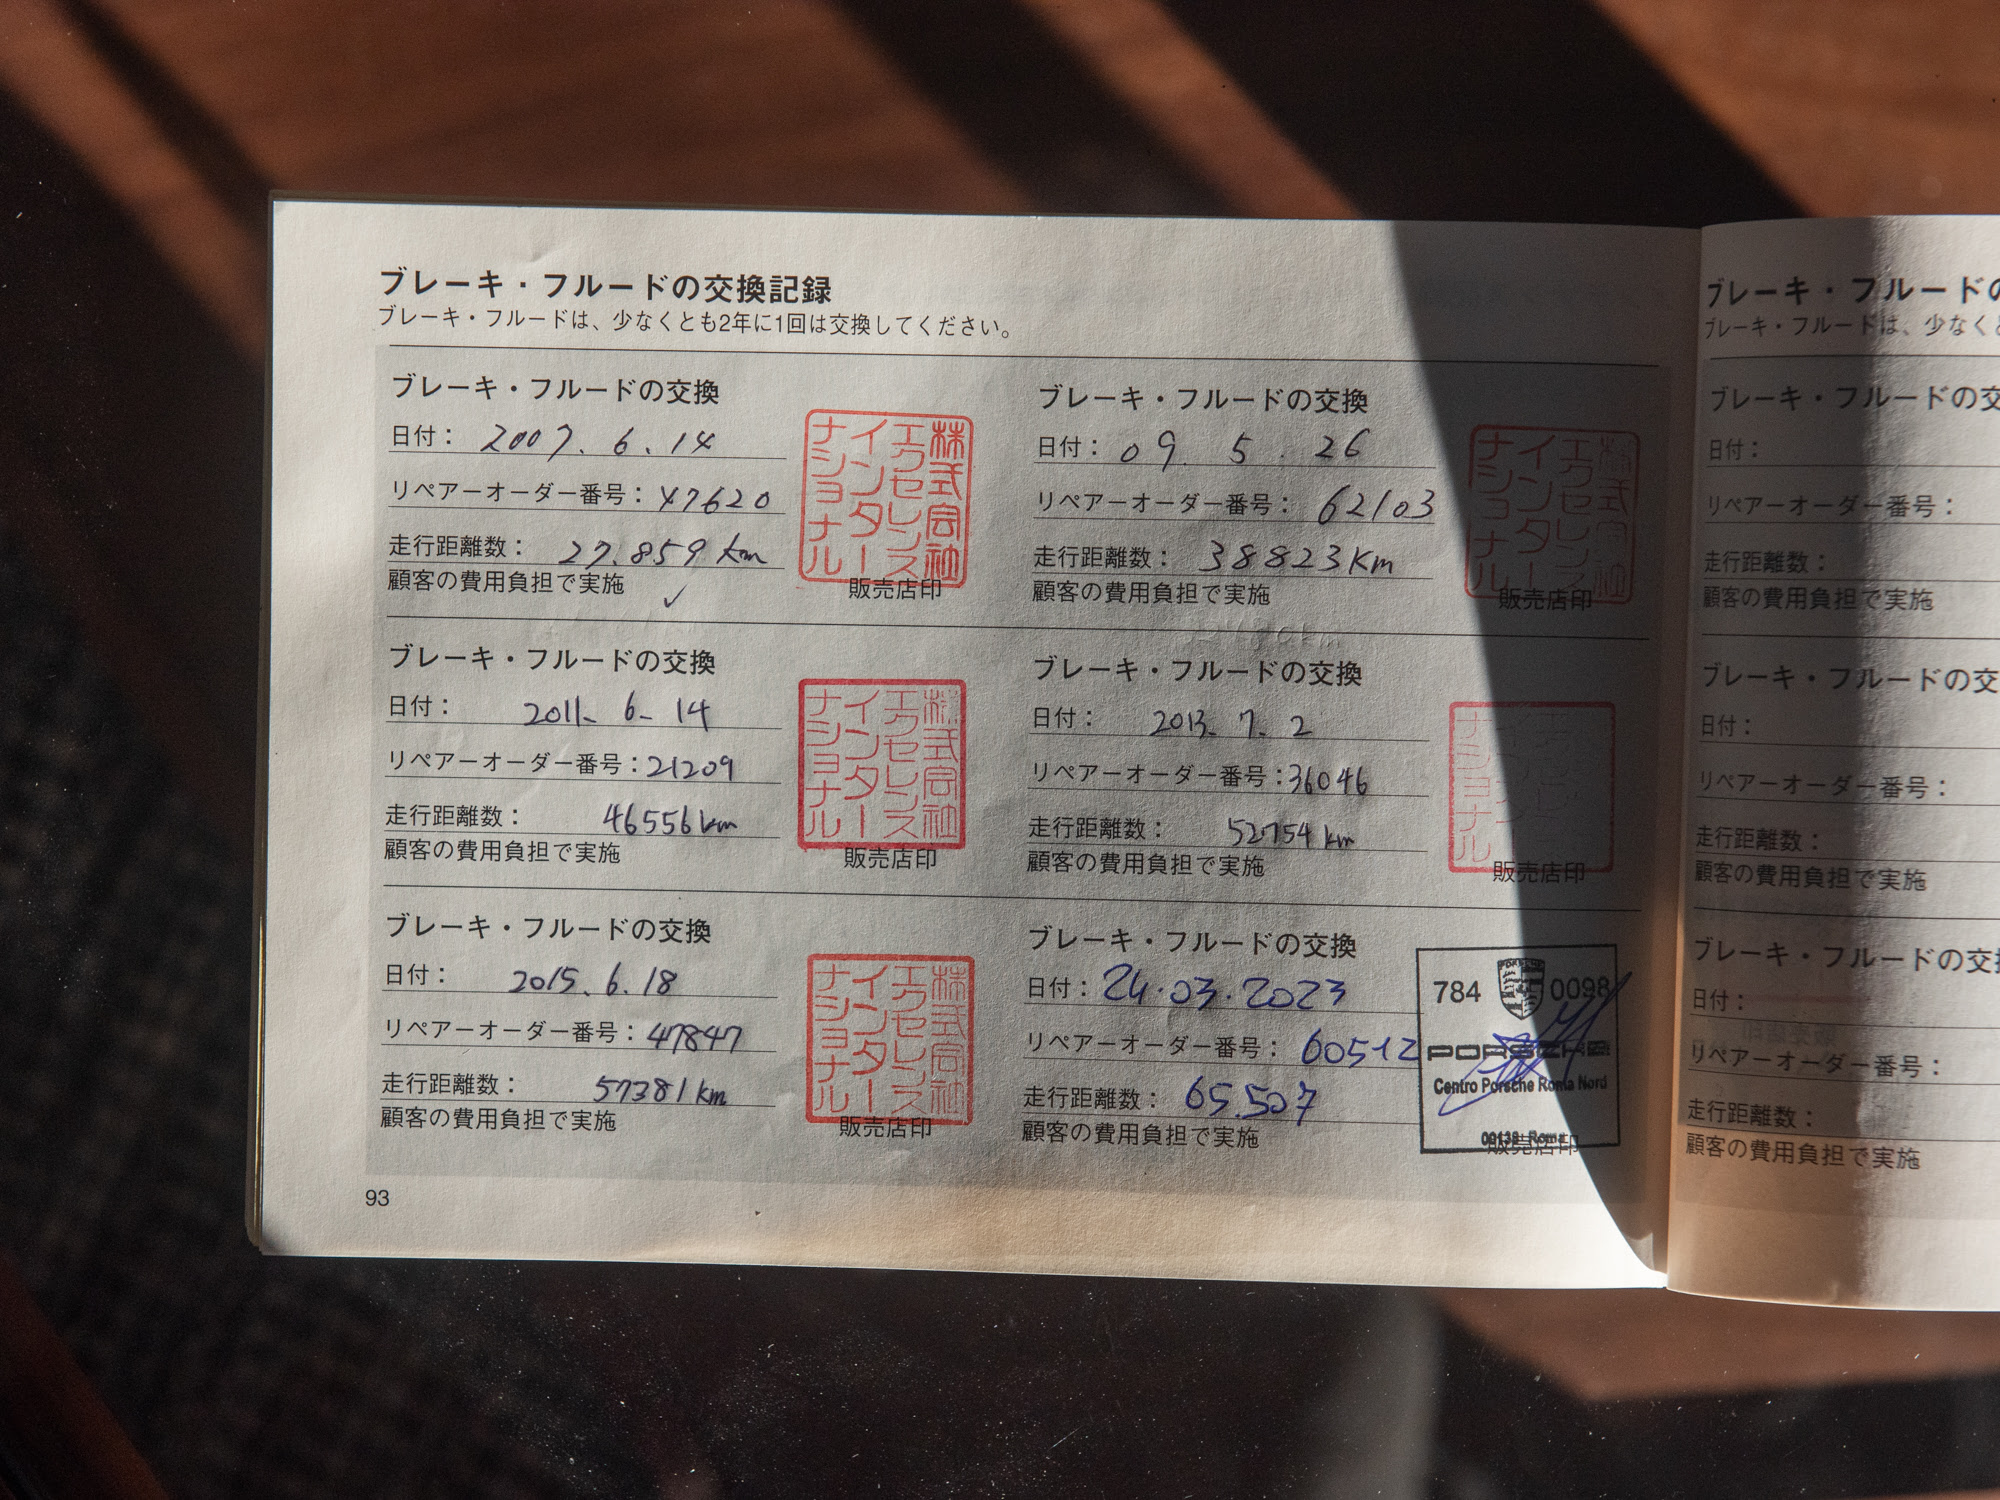 ブレーキ・フルードの交換記録
ブレーキ・フルードは、少なくとも2年に1回は交換してください。
ブレーキ・フルードの交換
日付： 2007. 6. 14
リペアーオーダー番号： 47620
走行距離数： 27.859 km
顧客の費用負担で実施 ✓
株式会社エクセレンスインターナショナル
販売店印
ブレーキ・フルードの交換
日付： 09. 5. 26
リペアーオーダー番号： 62103
走行距離数： 38823 Km
顧客の費用負担で実施
株式会社エクセレンスインターナショナル
販売店印
ブレーキ・フルードの交換
日付： 2011- 6- 14
リペアーオーダー番号：21209
走行距離数： 46556 km
顧客の費用負担で実施
株式会社エクセレンスインターナショナル
販売店印
ブレーキ・フルードの交換
日付： 2013. 7. 2
リペアーオーダー番号：36046
走行距離数： 52754 km
顧客の費用負担で実施
ナショナル
販売店印
ブレーキ・フルードの交換
日付： 2015. 6. 18
リペアーオーダー番号：47847
走行距離数： 57381 km
顧客の費用負担で実施
株式会社エクセレンスインターナショナル
販売店印
ブレーキ・フルードの交換
日付：24.03.2023
リペアーオーダー番号： 60512
走行距離数： 65.507
顧客の費用負担で実施
784 PORSCHE 0098
PORSCHE
Centro Porsche Roma Nord
00138 Roma
販売店印
93
ブレーキ・フルードの
ブレーキ・フルードは、少なくと
ブレーキ・フルードの交
日付：
リペアーオーダー番号：
走行距離数：
顧客の費用負担で実施
ブレーキ・フルードの交
日付：
リペアーオーダー番号：
走行距離数：
顧客の費用負担で実施
ブレーキ・フルードの交換
日付：
リペアーオーダー番号：
走行距離数：
顧客の費用負担で実施